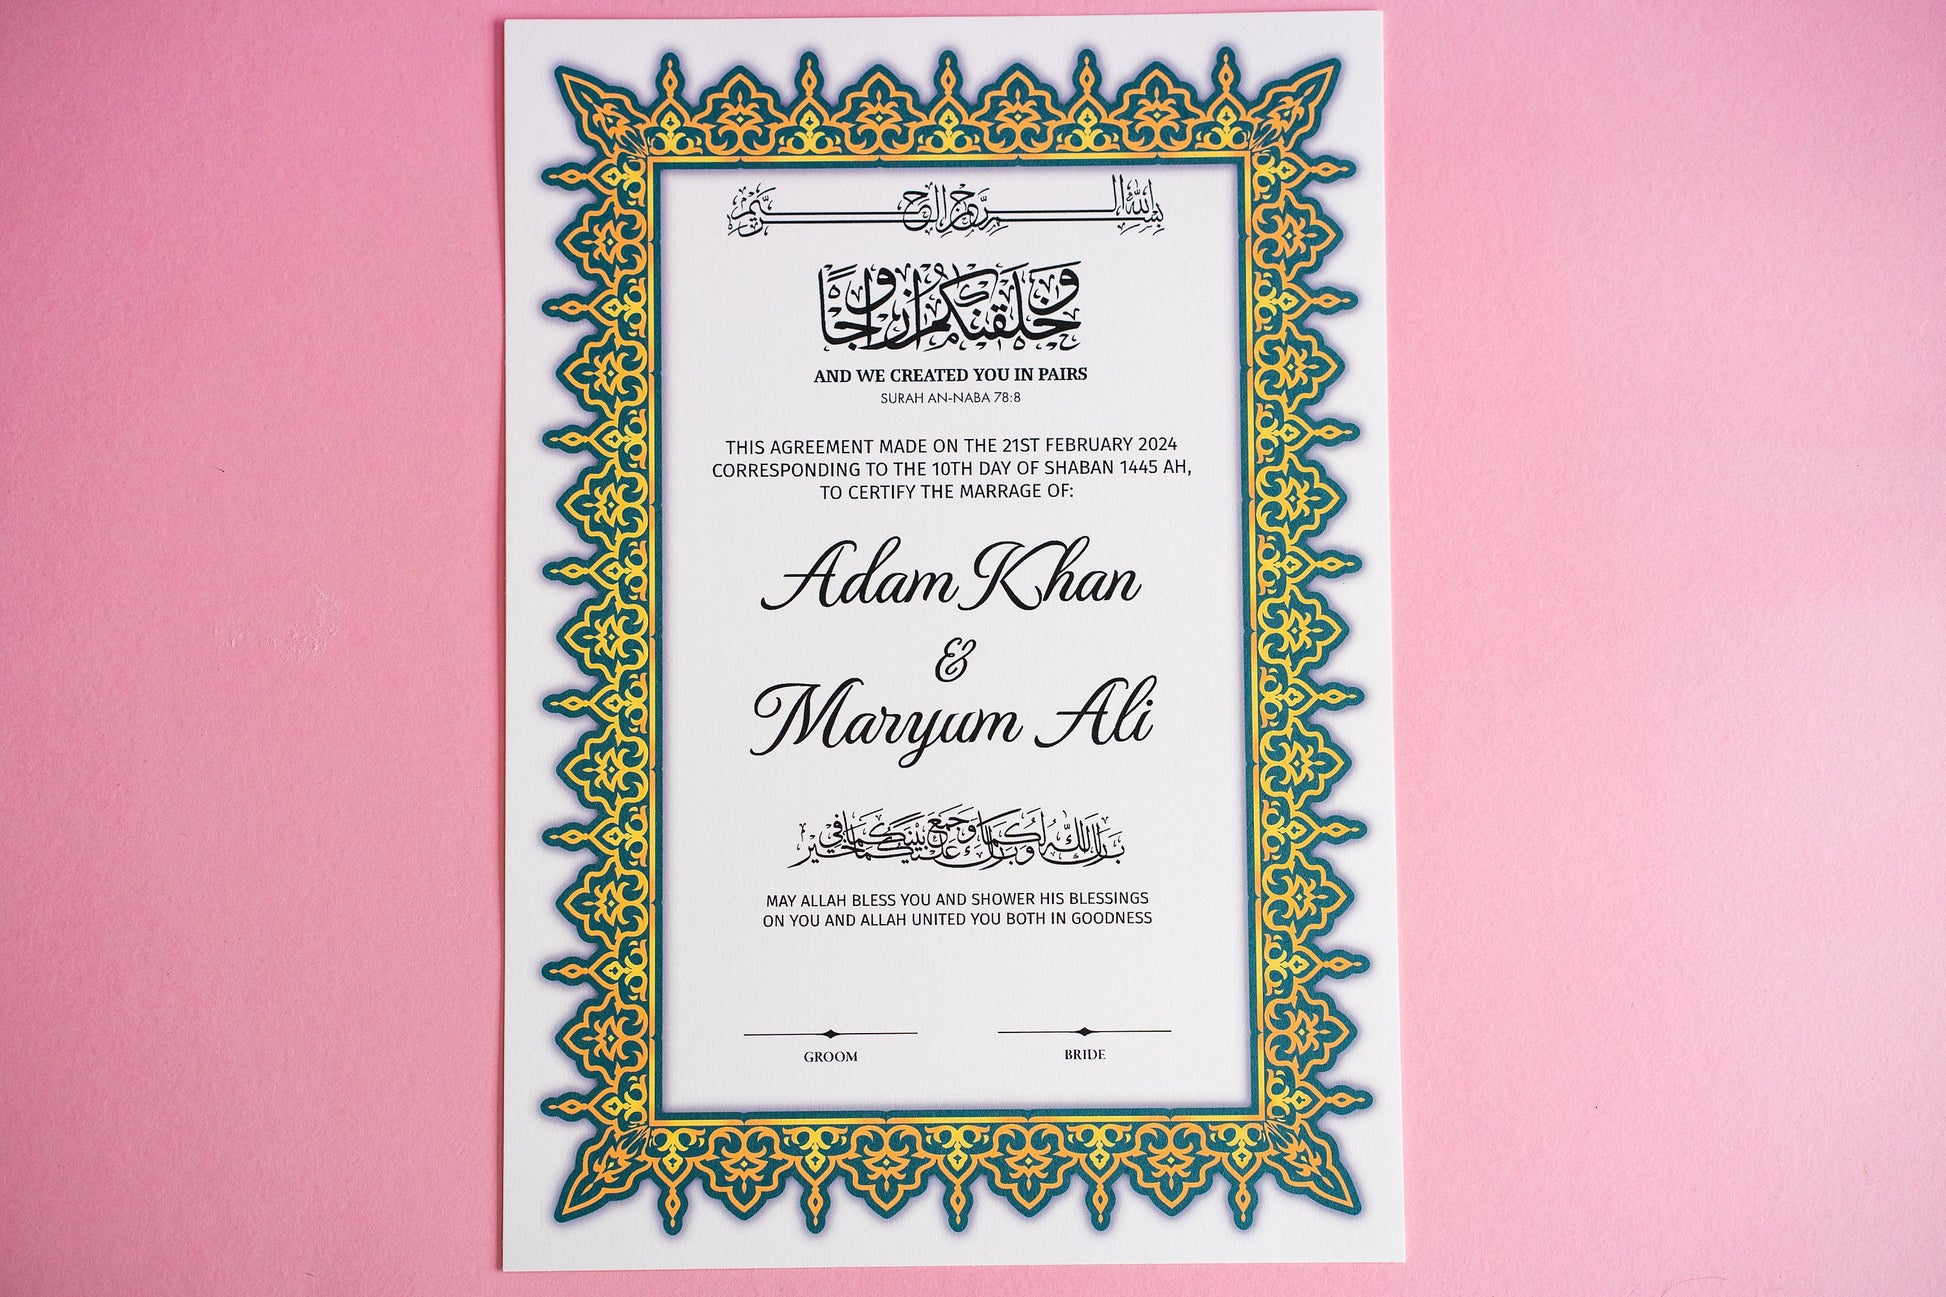 بِسْمِ اللهِ الرَّحْمٰنِ الرَّحِيْمِ
وَخَلَقْنٰكُمْ اَزْوَاجًا
AND WE CREATED YOU IN PAIRS
SURAH AN-NABA 78:8
THIS AGREEMENT MADE ON THE 21ST FEBRUARY 2024
CORRESPONDING TO THE 10TH DAY OF SHABAN 1445 AH,
TO CERTIFY THE MARRAGE OF:
Adam Khan
&
Maryum Ali
بَارَكَ اللّٰهُ لَكُمَا وَبَارَكَ عَلَيْكُمَا وَجَمَعَ بَيْنَكُمَا فِي خَيْرٍ
MAY ALLAH BLESS YOU AND SHOWER HIS BLESSINGS
ON YOU AND ALLAH UNITED YOU BOTH IN GOODNESS
GROOM BRIDE